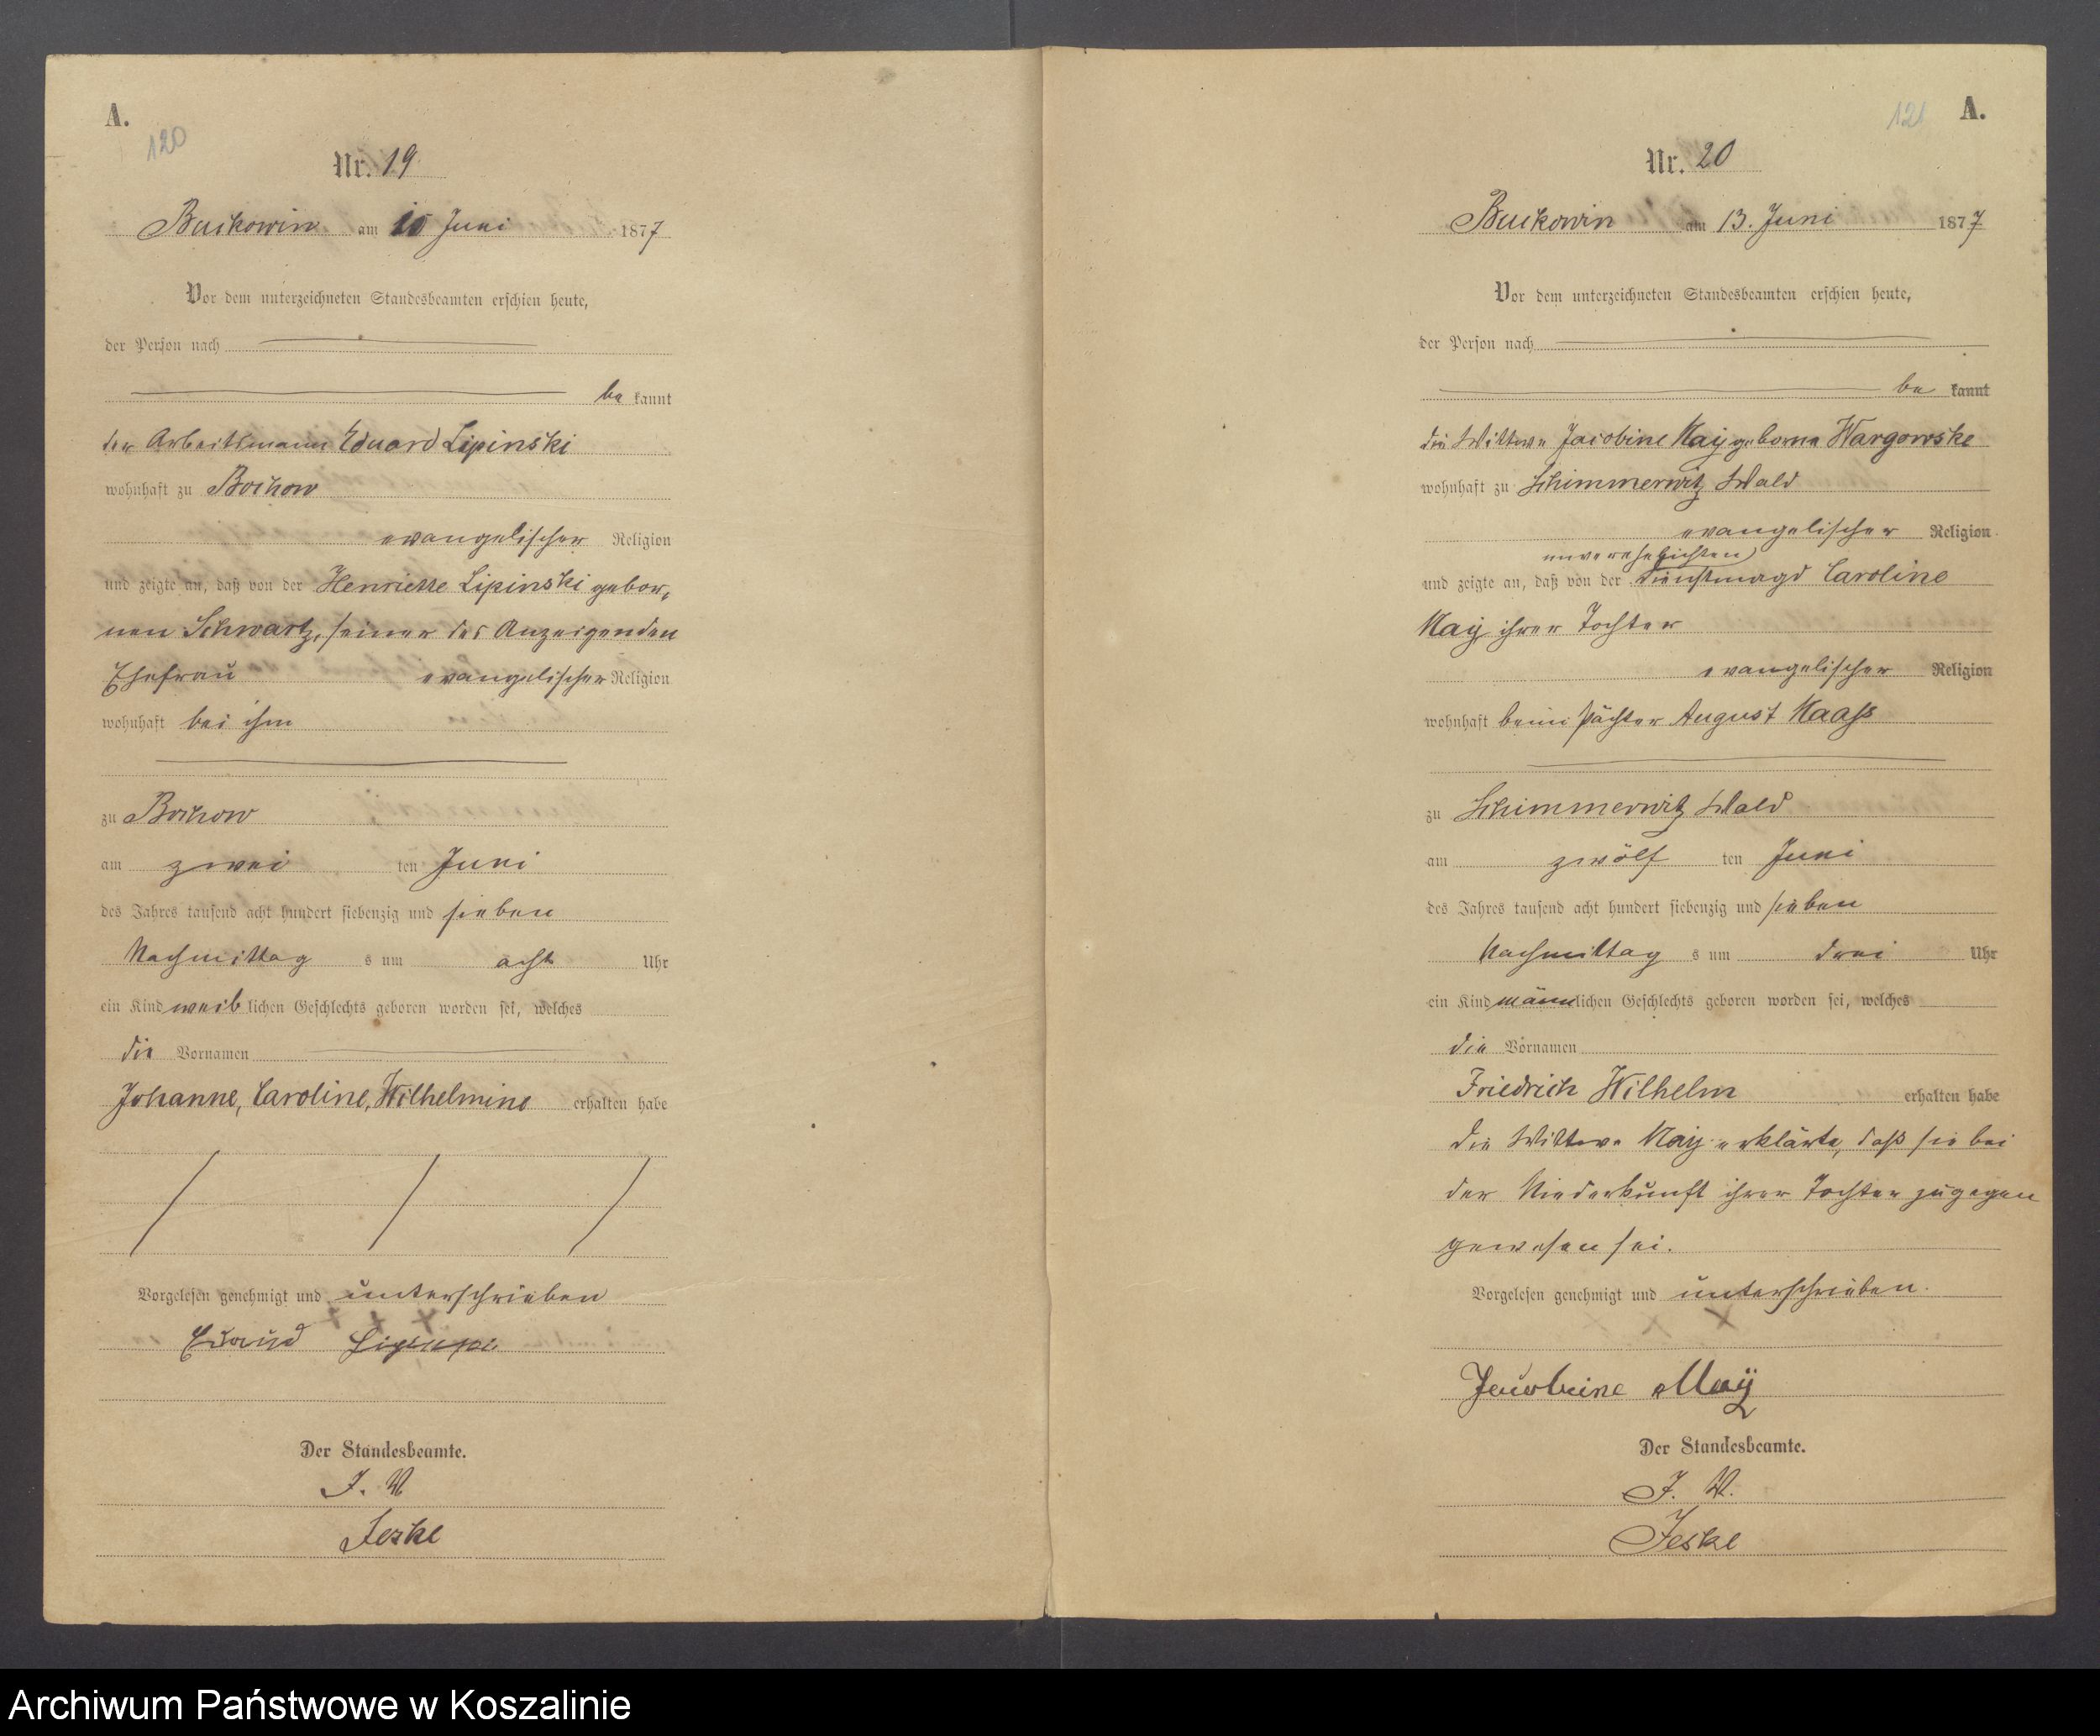 A.
120
Nr. 19
Buckowin am 10 Juni 1877
Vor dem unterzeichneten Standesbeamten erschien heute,
der Person nach
be kannt
der Arbeitsmann Eduard Lipinski
wohnhaft zu Bochow
evangelischer Religion
und zeigte an, daß von der Henriette Lipinski gebor„
nen Schwartz, seiner des Anzeigenden
Ehefrau evangelischer Religion
wohnhaft bei ihm
zu Bochow
am zwei ten Juni
des Jahres tausend acht hundert siebenzig und sieben
Nachmittag s um acht Uhr
ein Kind weib lichen Geschlechts geboren worden sei, welches
die Vornamen
Johanne, Caroline, Wilhelmine erhalten habe
Vorgelesen genehmigt und unterschrieben
Eduard
Der Standesbeamte.
J. V.
Jeske
121
A.
Nr. 20
Buckowin am 13. Juni 1877
Vor dem unterzeichneten Standesbeamten erschien heute,
der Person nach
be kannt
die Wittwe Jacobine May geborne Wargowske
wohnhaft zu Schimmerwitz Wald
evangelischer Religion
unverehelichten
und zeigte an, daß von der Dienstmagd Caroline
May, ihrer Tochter
evangelischer Religion
wohnhaft beim Pächter August Kaaß
zu Schimmerwitz Wald
am zwölf ten Juni
des Jahres tausend acht hundert siebenzig und sieben
Nachmittag s um drei Uhr
ein Kind männlichen Geschlechts geboren worden sei, welches
die Vornamen
Friedrich Wilhelm erhalten habe
die Wittwe May erklärte, daß sie bei
der Niederkunft ihrer Tochter zugegen
gewesen sei.
Vorgelesen genehmigt und unterschrieben.
Jacobine Maÿ
Der Standesbeamte.
J. V.
Jeske
Archiwum Państwowe w Koszalinie